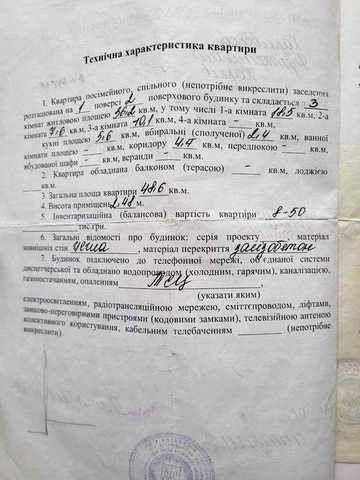 Технічна характеристика квартири
1. Квартира посімейного, спільного (непотрібне викреслити) заселення
розташована на 1 поверсі 2 поверхового будинку та складається з 3
кімнат житловою площею 36.2 кв.м, у тому числі 1-а кімната 18.5 кв.м, 2-а
кімната 7.6 кв.м, 3-а кімната 10.1 кв.м, 4-а кімната - кв.м,
кухні площею 5.6 кв.м, вбиральні (сполученої) 2.4 кв.м, ванної
кімнати площею - кв.м, коридору 4.4 кв.м, передпокою - кв.м,
вбудованої шафи - кв.м, веранди - кв.м.
2. Квартира обладнана балконом (терасою) - кв.м, лоджією
кв.м.
3 Загальна площа квартири 48.6 кв.м.
4. Висота приміщень 2.48 м.
5. Інвентаризаційна (балансова) вартість квартири 8-50
тис.грн.
6. Загальні відомості про будинок: серія проекту , матеріал
зовнішніх стін цегла , матеріал перекриття залізобетон
7. Будинок підключено до телефонної мережі, об'єднаної системи
диспетчерської та обладнано водопроводом (холодним, гарячим), каналізацією,
газопостачанням, опаленням ТЕЦ
(указати яким)
електроосвітленням, радіотрансляційною мережею, сміттєпроводом, ліфтами,
замково-переговорними пристроями (кодовими замками), телевізійною антеною
колективного користування, кабельним телебаченням (непотрібне
викреслити).